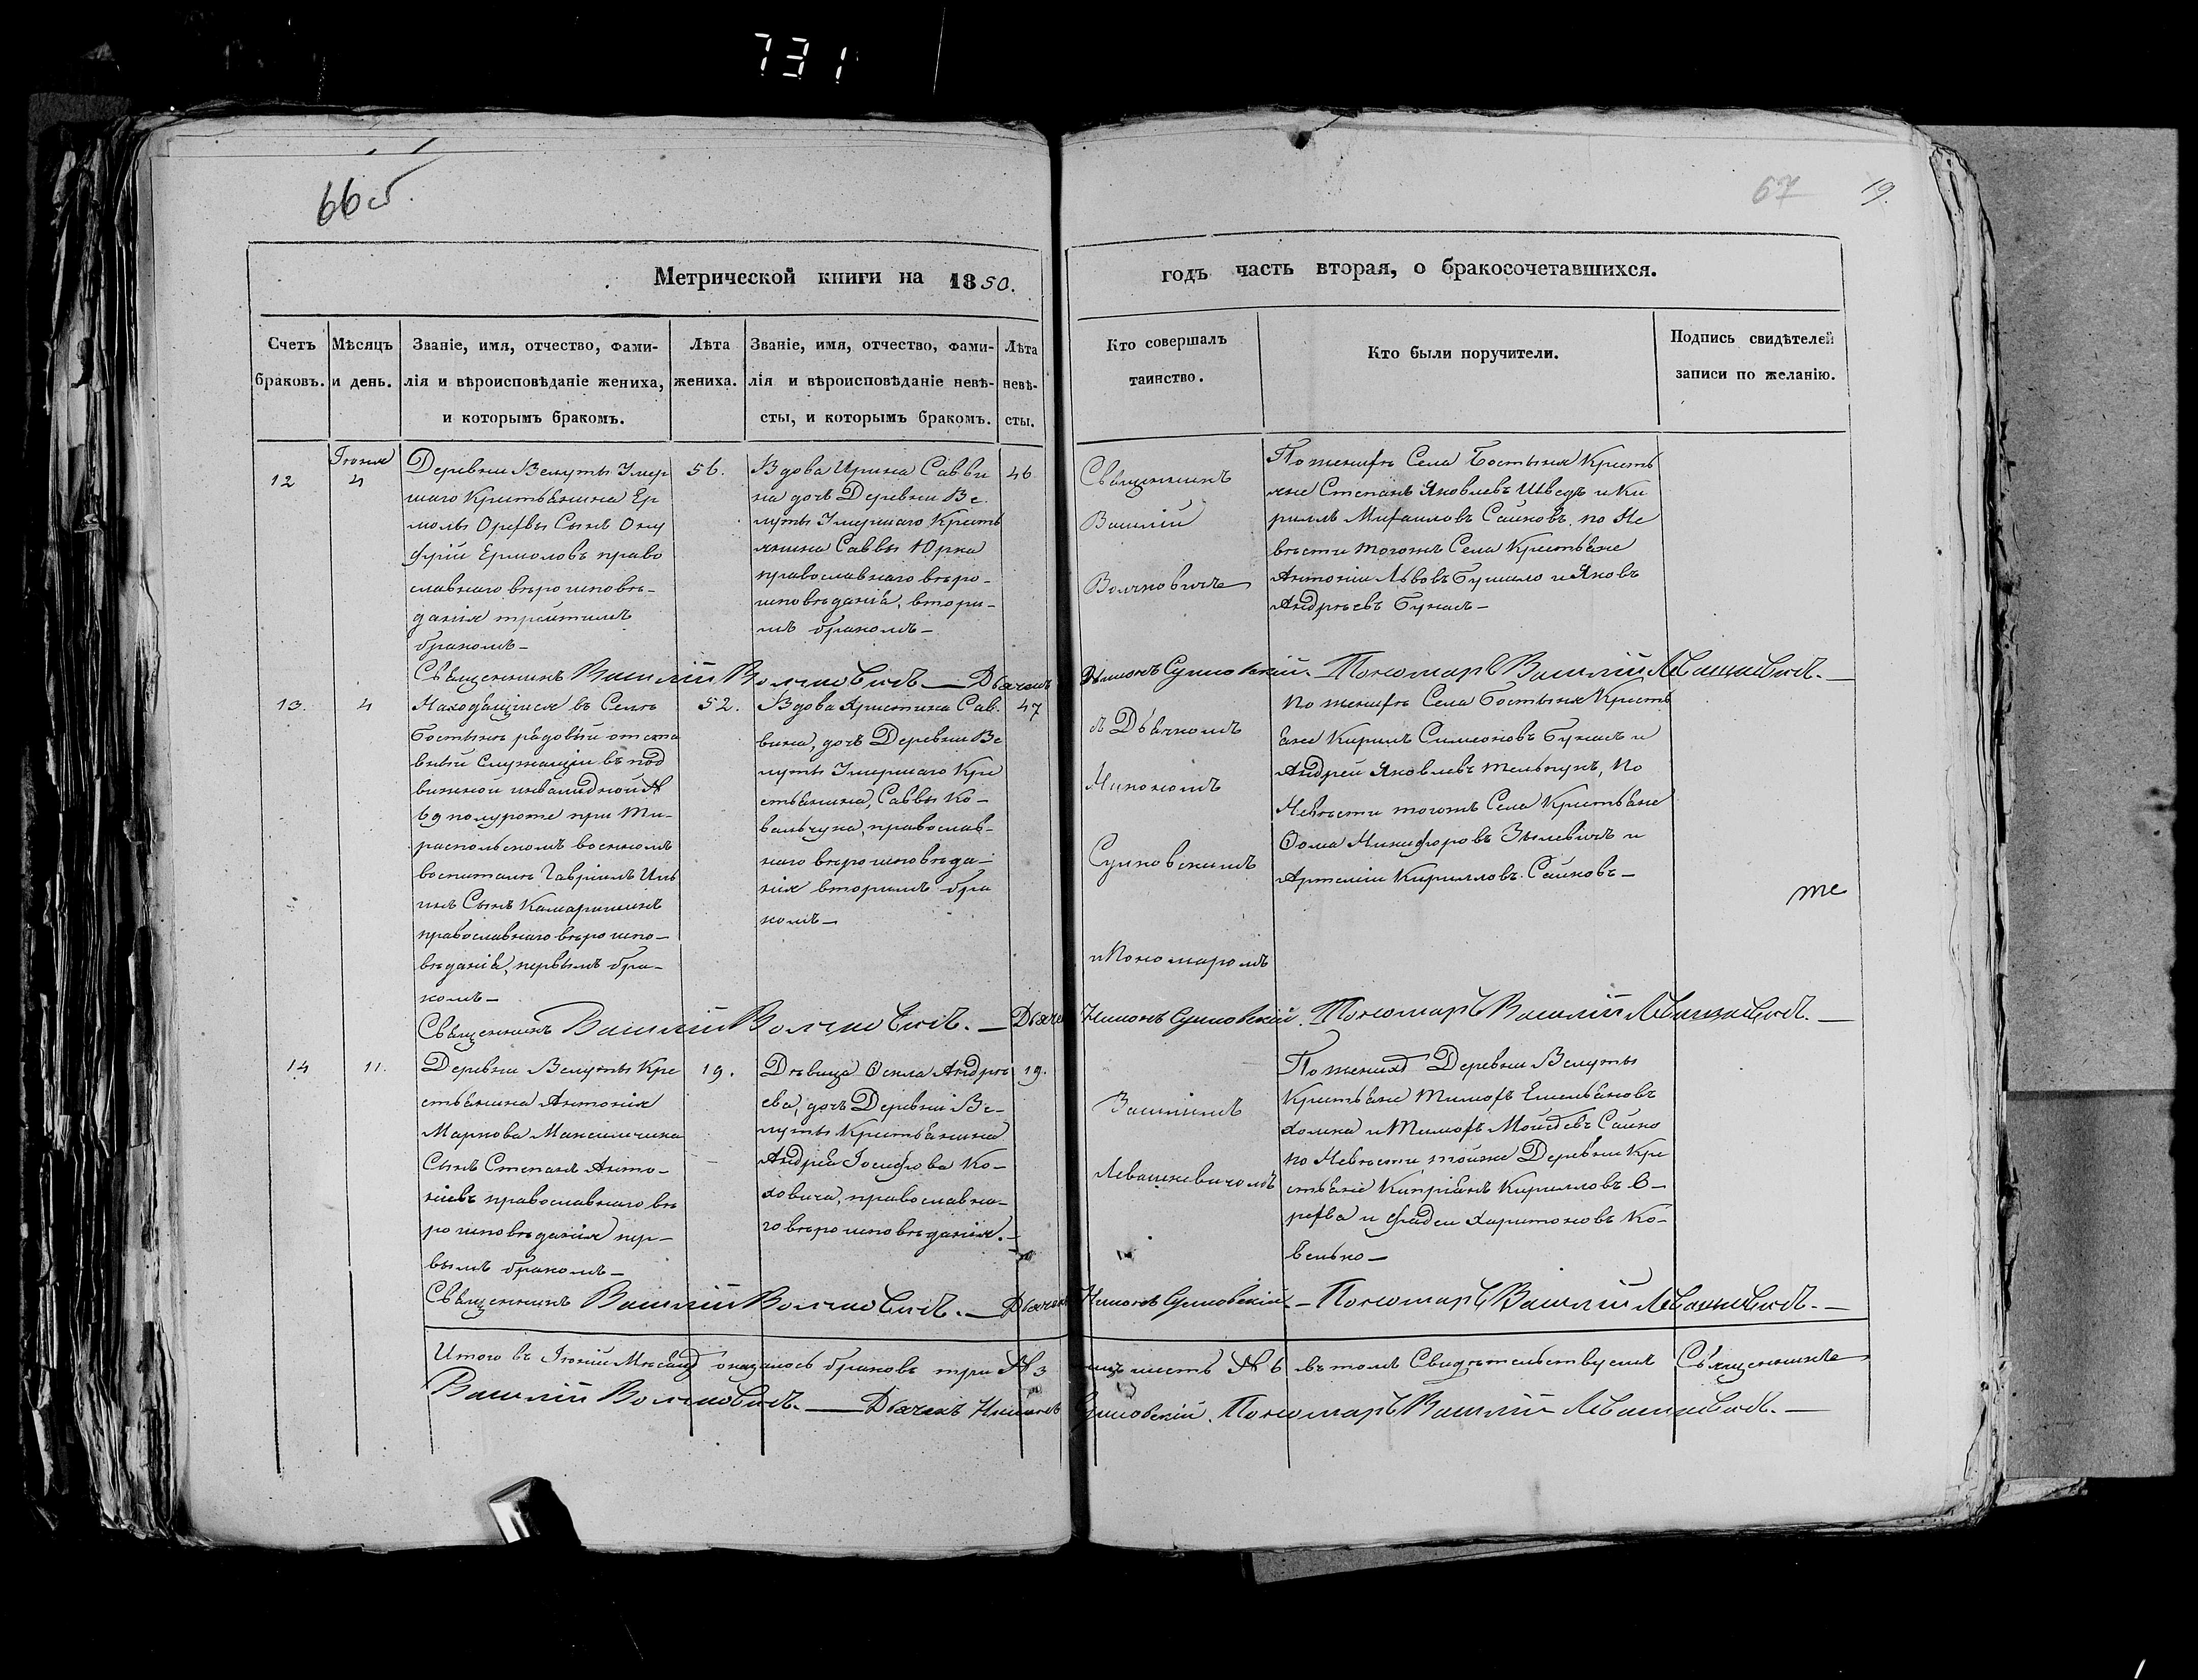 731
66 об.
67
19.
Метрической книги на 1850.
годъ часть вторая, о бракосочетавшихся.
Счетъ
браковъ.
Мѣсяцъ
и день.
Званіе, имя, отчество, фами-
лія и вѣроисповѣданіе жениха,
и которымъ бракомъ.
Лѣта
жениха.
Званіе, имя, отчество, фами-
лія и вѣроисповѣданіе невѣ-
сты, и которымъ бракомъ.
Лѣта
невѣ-
сты.
Кто совершалъ
таинство.
Кто были поручители.
Подпись свидѣтелей
записи по желанію.
12
Іюня
4
Деревни Велуты Умер
шаго Крестьянина Ер
молы Орефы Сынъ Ону
фрій Ермоловъ право
славнаго вѣроисповѣ-
данія третимъ
бракомъ-
56.
Вдова Ирина Савви
на дочь Деревни Ве
луты Умершаго Кресть
янина Саввы Юрка
православнаго вѣро-
исповѣданія, вторы-
мъ бракомъ-
46
Священникъ
Василій
Волчковичъ
По женихѣ Села Бостыня Кресть
яне Степанъ Яковлевъ Шведъ и Ки
риллъ Михаиловъ Сайковъ, по Не
вѣсти тогожъ Села Крестьяне
Антоній Львовъ Бушило и Яковъ
Андреевъ Букасъ-
Священникъ Василій Волчковичъ. - Дьячекъ Никонъ Сулковскій. Пономарь Василій Левашкевичъ. -
13.
4
Находящійся въ Селѣ
Бостынѣ рядовый отста
вный служащій въ под
вижной инвалидной №
69 полуроте при Ти-
распольскомъ военномъ
госпиталѣ Гавріилъ Иль
инъ Сынъ Камаришинъ
православнаго вѣроиспо-
вѣданія, первымъ бра-
комъ-
52.
Вдова Христина Сав.
вина, дочь Деревни Ве
луты Умершаго Кре
стьянина, Саввы Ко-
вальчука, православ-
наго вѣроисповѣда-
нія вторымъ бра
комъ-
47
съ Дьячкомъ
Никономъ
Сулковскимъ
и Пономаромъ
По женихѣ Села Бостыня Кресть
яне Кирилъ Симеоновъ Букасъ и
Андрей Яковлевъ Тельпукъ, По
Невѣсти тогожъ Села Крестьяне
Ѳома Никифоровъ Зылевичъ и
Артемій Кирилловъ Сайковъ-
те
Священникъ Василій Волчковичъ. - Дьячекъ Никонъ Сулковскій. Пономарь Василій Левашкевичъ. -
14
11.
Деревни Велуты Кре
стьянина Антонія
Маркова Максимчика
Сынъ Степанъ Анто-
ніевъ православнаго вѣ
роисповѣданія пер-
вымъ бракомъ-
19.
Дѣвица Ѳекла Андрѣ
ева, дочь Деревни Ве-
луты Крестьянина
Андрея Іосифова Ко-
ховича, православна-
го вѣроисповѣданія.-
19.
Василіемъ
Левашкевичомъ
По женихѣ Деревни Велуты
Крестьяне Тимофѣ Емельяновъ
Хомка и Тимофѣ Моисѣевъ Сайко
по Невѣсти тойже Деревни Кре
стьяне Кипріянъ Кирилловъ О-
рефа и Фадей Харитоновъ Ко-
велько-
Священникъ Василій Волчковичъ. - Дьячекъ Никонъ Сулковскій - Пономарь Василій Левашкевичъ. -
Итого въ Іюнѣ Мѣсяцѣ оказалось браковъ три № 3 лицъ шесть № 6 въ томъ Свидѣтельствуемъ Священникъ
Василій Волчковичъ. - Дьячекъ Никонъ Сулковскій. Пономарь Василій Левашкевичъ. -